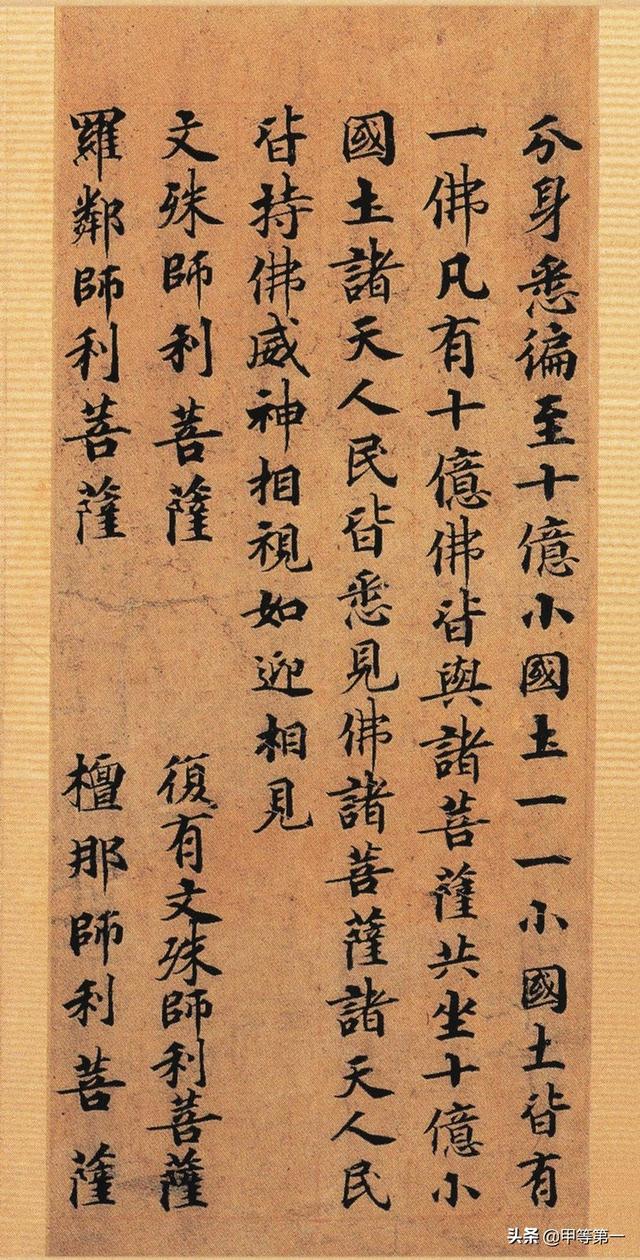 分身悉徧至十億小國土一一小國土皆有
一佛凡有十億佛皆與諸菩薩共坐十億小
國土諸天人民皆悉見佛諸菩薩諸天人民
皆持佛威神相視如迎相見
文殊師利菩薩 復有文殊師利菩薩
羅鄰師利菩薩 檀那師利菩薩
头条 @甲等第一